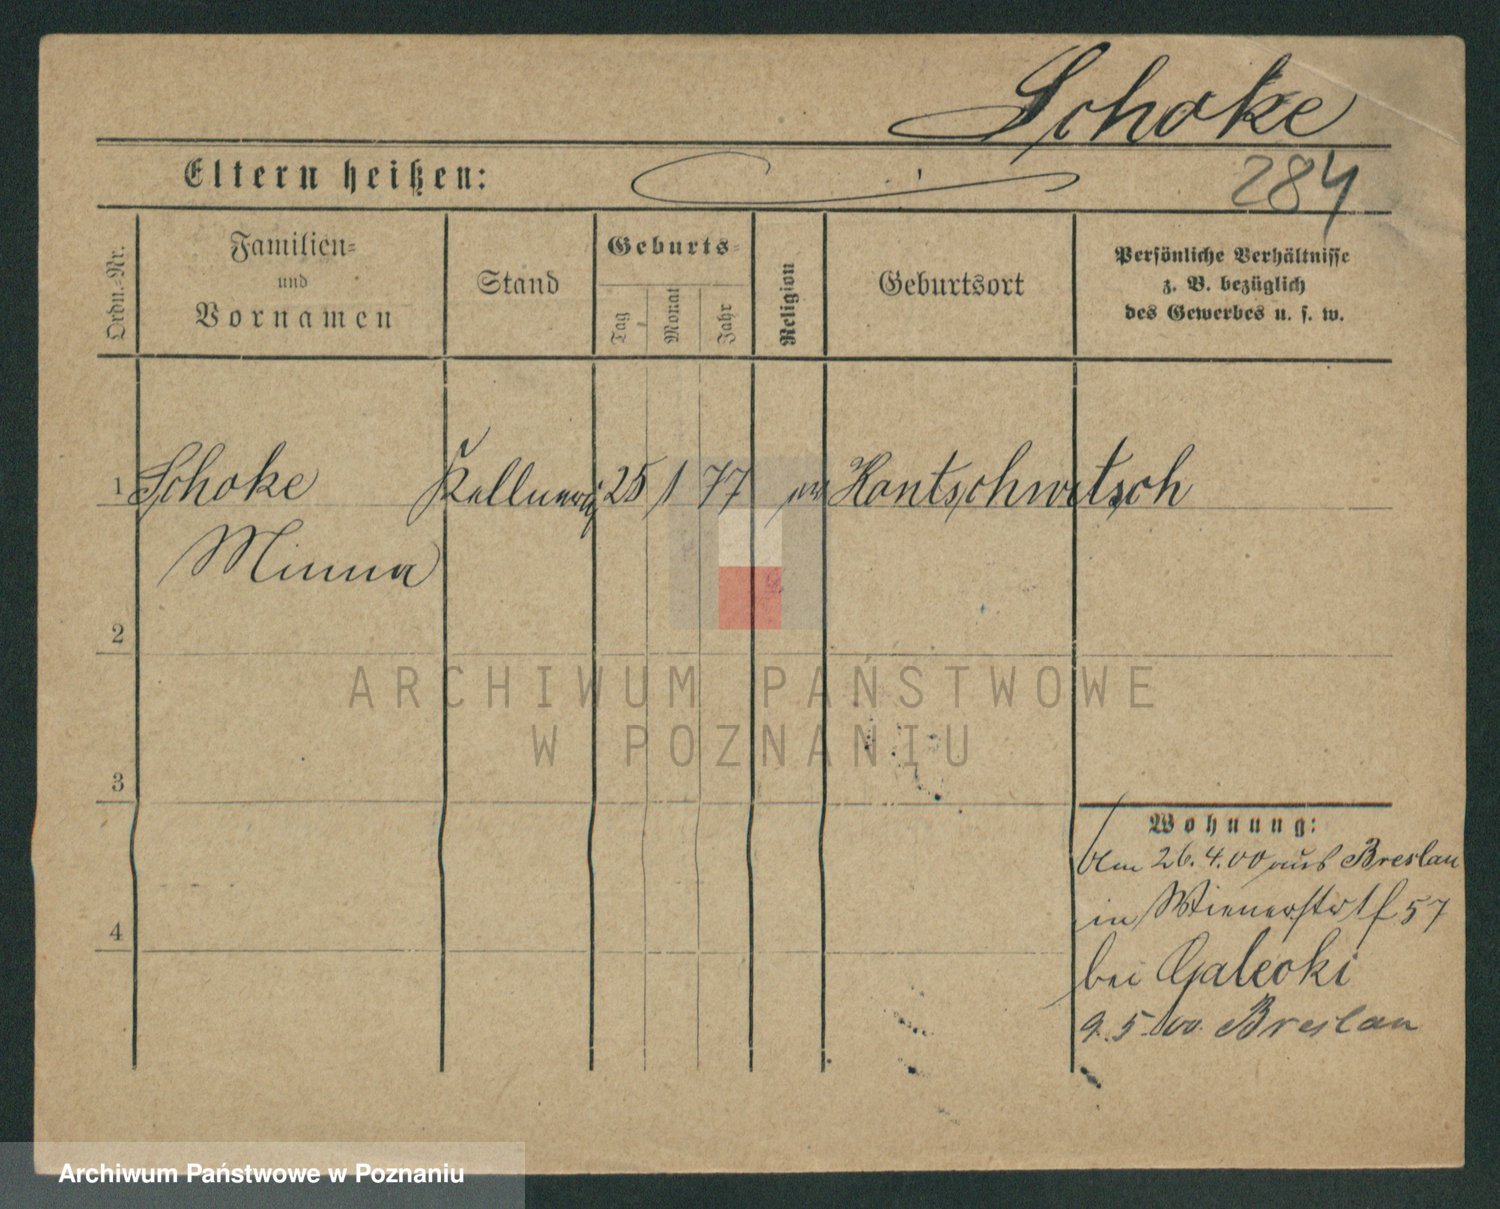 Schoke
Eltern heißen:
284
Ordn.-Nr.
Familien-
und
Vornamen
Stand
Geburts-
Tag
Monat
Jahr
Religion
Geburtsort
Persönliche Verhältnisse
z. B. bezüglich
des Gewerbes u. s. w.
1 Schoke Kellnerin 25 1 77 ev Kantschwitsch
Minna
2
ARCHIWUM PAŃSTWOWE
W POZNANIU
3
Wohnung:
Am 26.4.00 aus Breslau
in Wienerstr 57
4
bei Galecki
9.5.00 Breslau
Archiwum Państwowe w Poznaniu